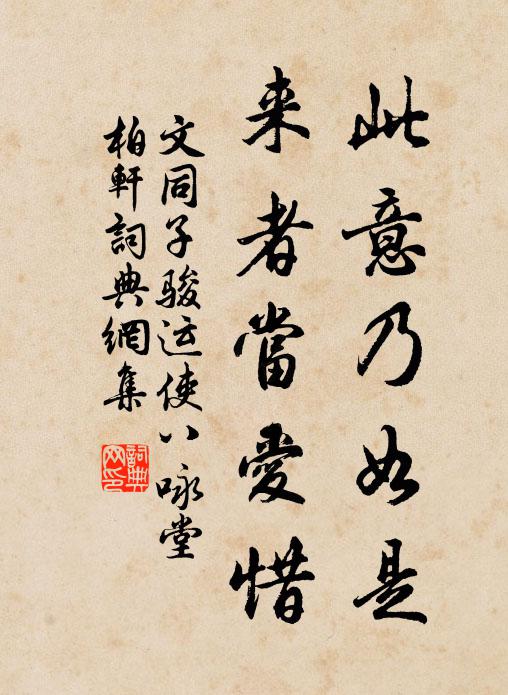 此意乃如是
来者當愛惜
文同子骏运使八咏堂
柏軒詞典網集
詞典网印